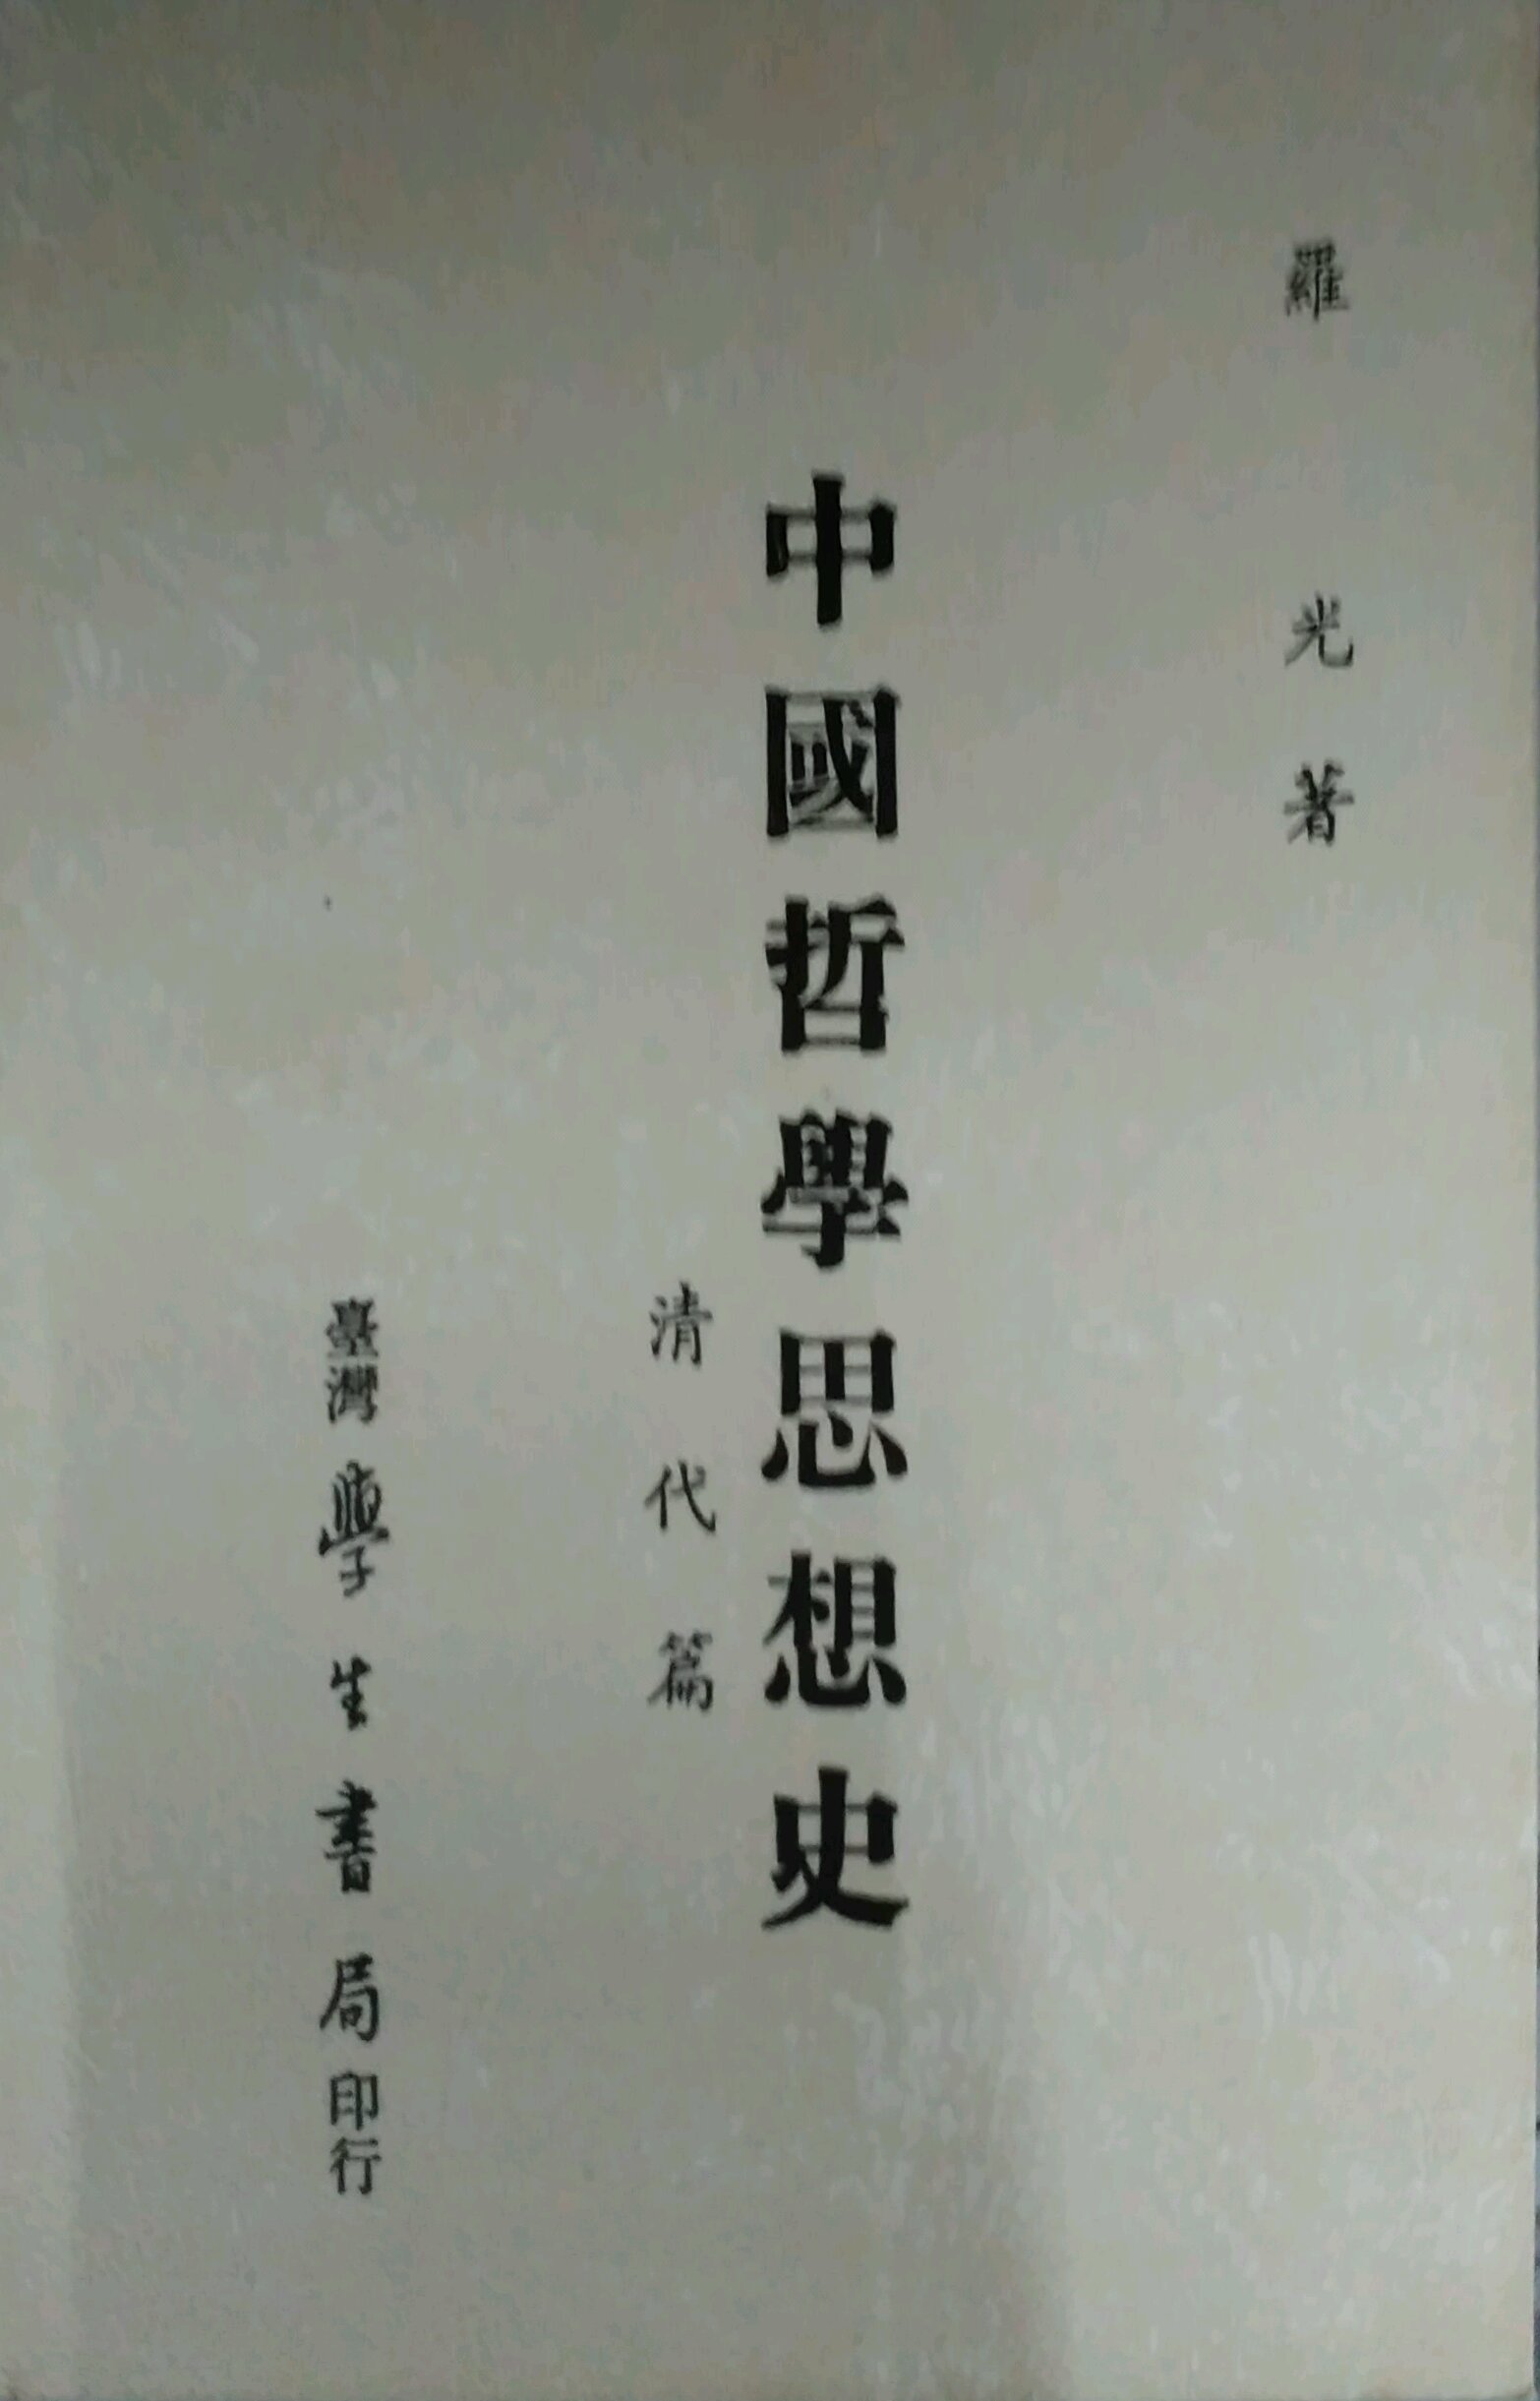 羅光著
中國哲學思想史
清代篇
臺灣學生書局印行